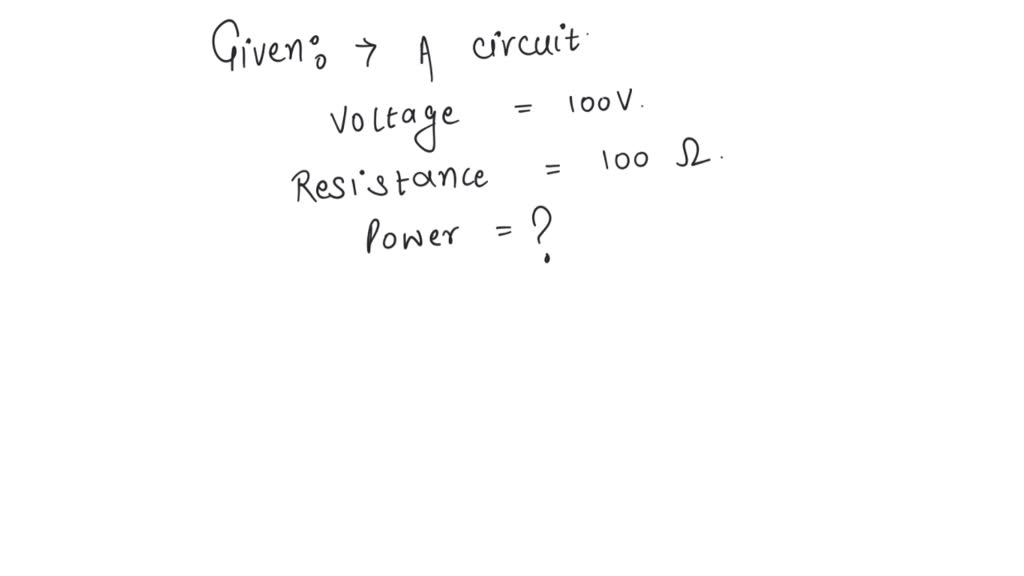 Given: → A circuit.
Voltage = 100V.
Resistance = 100 Ω.
Power = ?